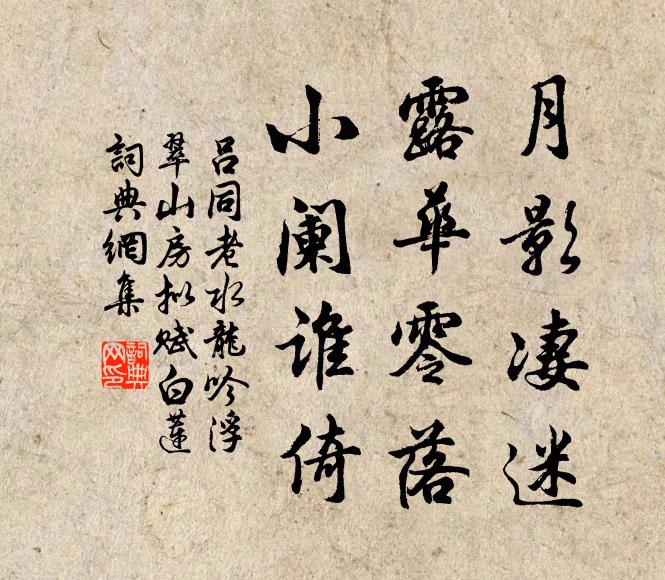 月影凄迷
露華零落
小阑谁倚
吕同老水龍吟浮
翠山房拟赋白蓮
詞典網集
詞典网印